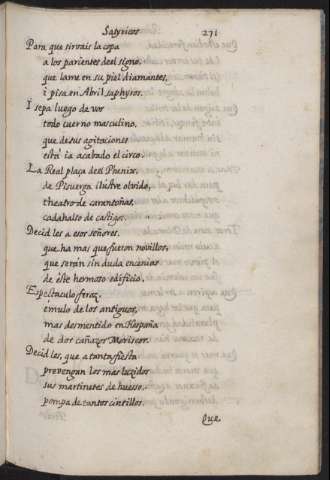 Satyricos 271
Para que siruais la copa
a los parientes deel signo,
que lame en su piel diamantes,
i pisa en Abril saphyros.
I sepa luego de vos
todo cuerno masculino,
que de sus agitaciones
está ia acabado el circo.
La Real plaça deel Phenix,
de Pisuerga ilustre oluido,
theatro de carantoñas,
cadahalso de castigos.
Decidles a esos señores,
que ha mas que fueron nouillos,
que serán sin duda encenias
de este hermoso edificio.
Espectaculo feroz,
emulo de los antiguos,
mas desmentido en España
de dos cañazos Moriscos.
Decidles, que a tanta fiesta
preuengan los mas luzidos
sus martinetes de huesso,
pompa de tantos cintillos.
Que